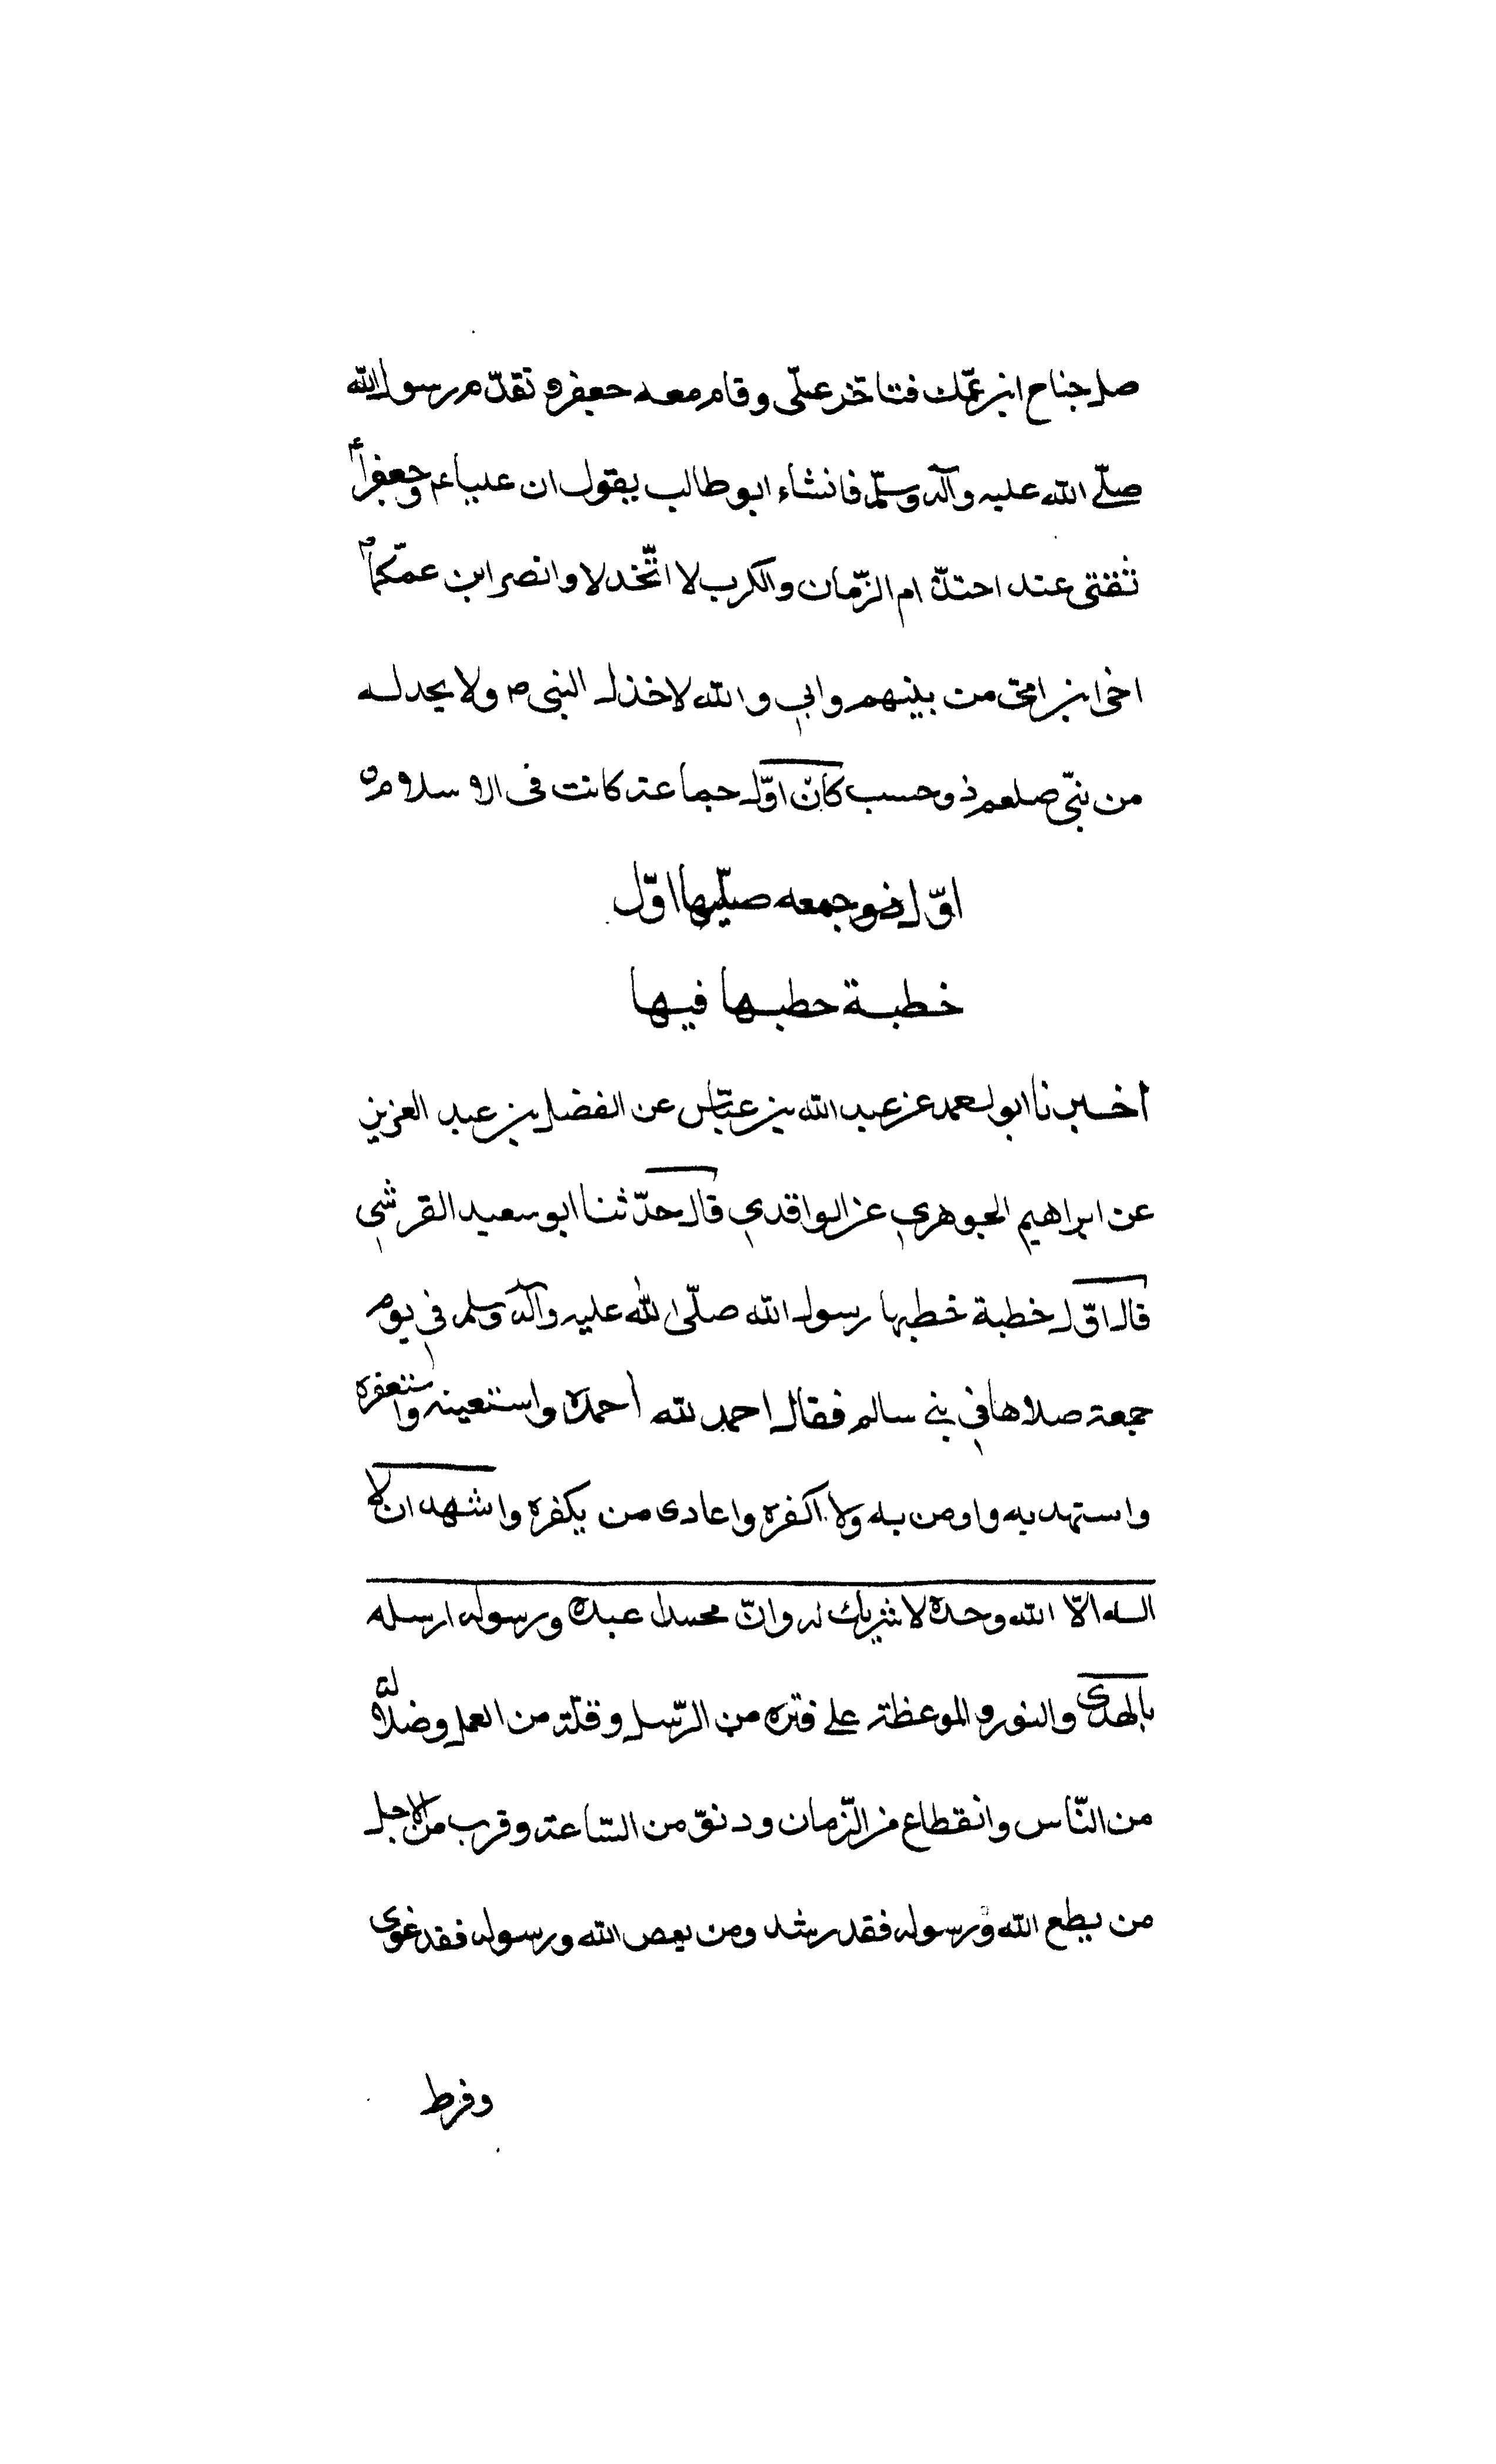 صل جناح ابن عمّك فتاخّر علّى وقام معه جعفر و تقدّم رسول الله
صلّى الله عليه وآله وسلّم فانشاء ابو طالب يقول ان علياء م وجعفراً م
ثقتى عند احتدّام الزّمان والكرب لا اتّخدلا وانصر ابن عمّكما م
اخى ابن امى من بينهم وابي والله لا خذل النبى ص ولا يحدله
من بنىّ صلعم ذو حسب كان اوّل جماعة كانت فى الاسلام ه
اوّل جمعه صلّيها اوّل
خطبة حطبها فيها
اخبرنا ابو عن عبد الله بن عبّاس عن الفضل بن عبد العزيز
عن ابراهيم الجوهري عن الواقدي قال حدّثنا ابو سعيد القرشي
قال اوّل خطبة خطبها رسول الله صلّى الله عليه وآله وسلم في يوم
جمعة صلاها في بنى سالم فقال احمد لله أحمده واستعينه واستغفره
واستهديه واومن به ولا اكفره واعادى من يكفره واشهد ان لا
اله الّا الله وحده لا شريك له وانّ محمدا عبده ورسوله ارسله
بالهدى والنور و الموعظة على فتره من الرّسل وقلّة من العمل وضلالة
من النّاس وانقطاع من الزّمان ودنوّ من السّاعة وقرب من الاجل
من يطع الله ورسوله فقد رشد ومن يعص الله ورسوله فقد غوى
وفرط